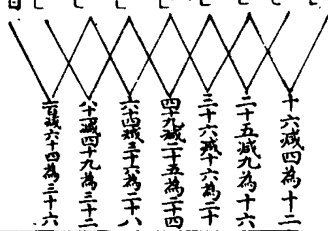 十六减四為十二
二十五减九為十六
三十六减十六為二十
四十九减二十五為二十四
六十四减三十六為二十八
八十一减四十九為三十二
一百减六十四為三十六